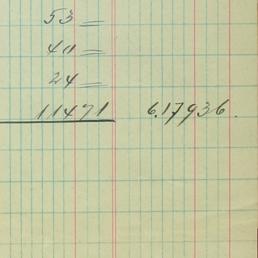 53 =
40 =
24 =
11471 6.17936.